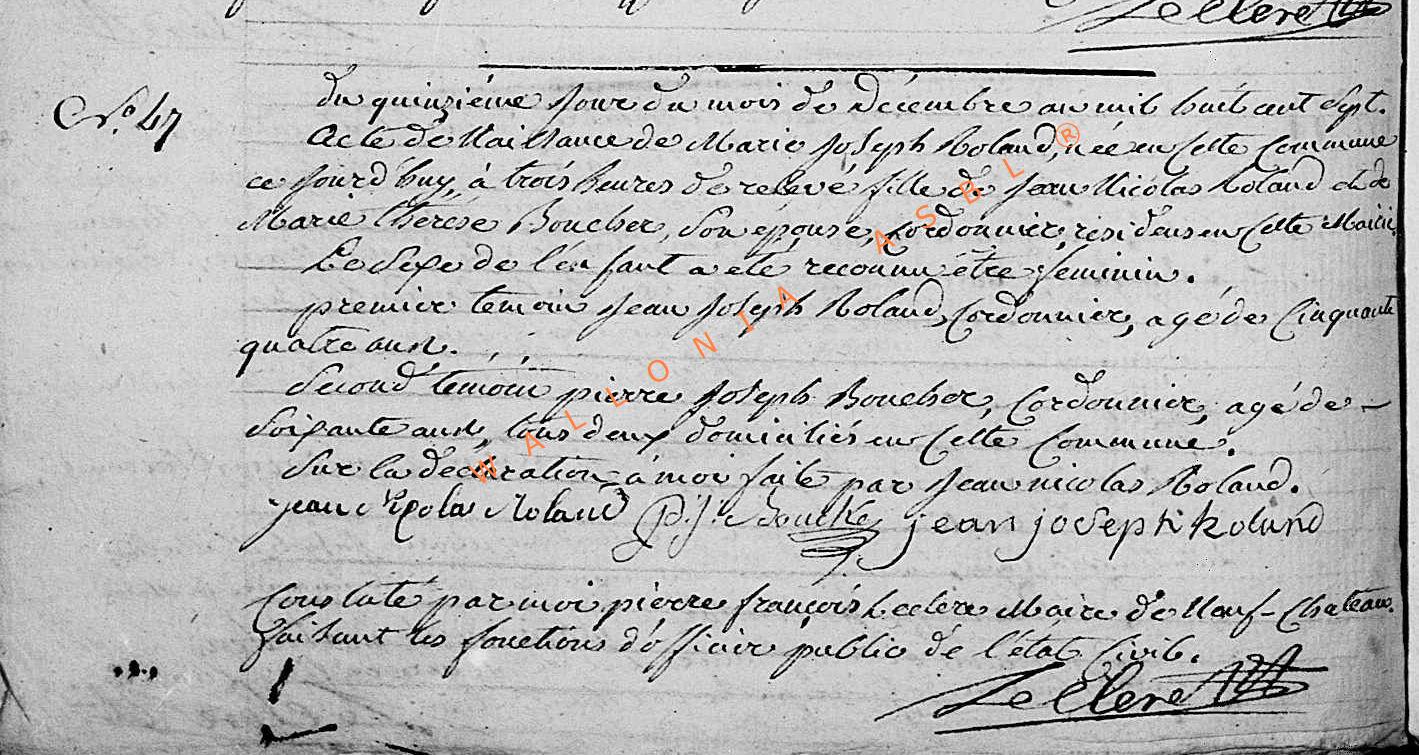 Leclere
N.o 47
du quinziéme jour du mois de décembre an mil huit cent sept.
Acte de Naissance de Marie Joseph Roland, née en Cette Commune
ce jourd'huy, à trois heures de relevé, fille de Jean Nicolas Roland et de
Marie thérèse Boucher, Son épouse, Cordonnier, résidens en Cette Mairie.
Le Sexe de l'enfant a été reconnu être féminin.
premier temoin Jean Joseph Roland, Cordonnier, agé de Cinquante
quatre ans.
Second temoin pierre Joseph Boucher, Cordonnier, agé de
Soixante ans, tous deux domiciliés en Cette Commune.
Sur la déclaration à moi faite par Jean nicolas Roland.
jean Nicolas Roland P. J. Bouche jean joseph Roland
Constaté par moi pierre françois Leclère Maire de Neuf-Chateau
faisant les fonctions d'officier public de l'état Civil.
Leclere
WALLONIA ASBL ®